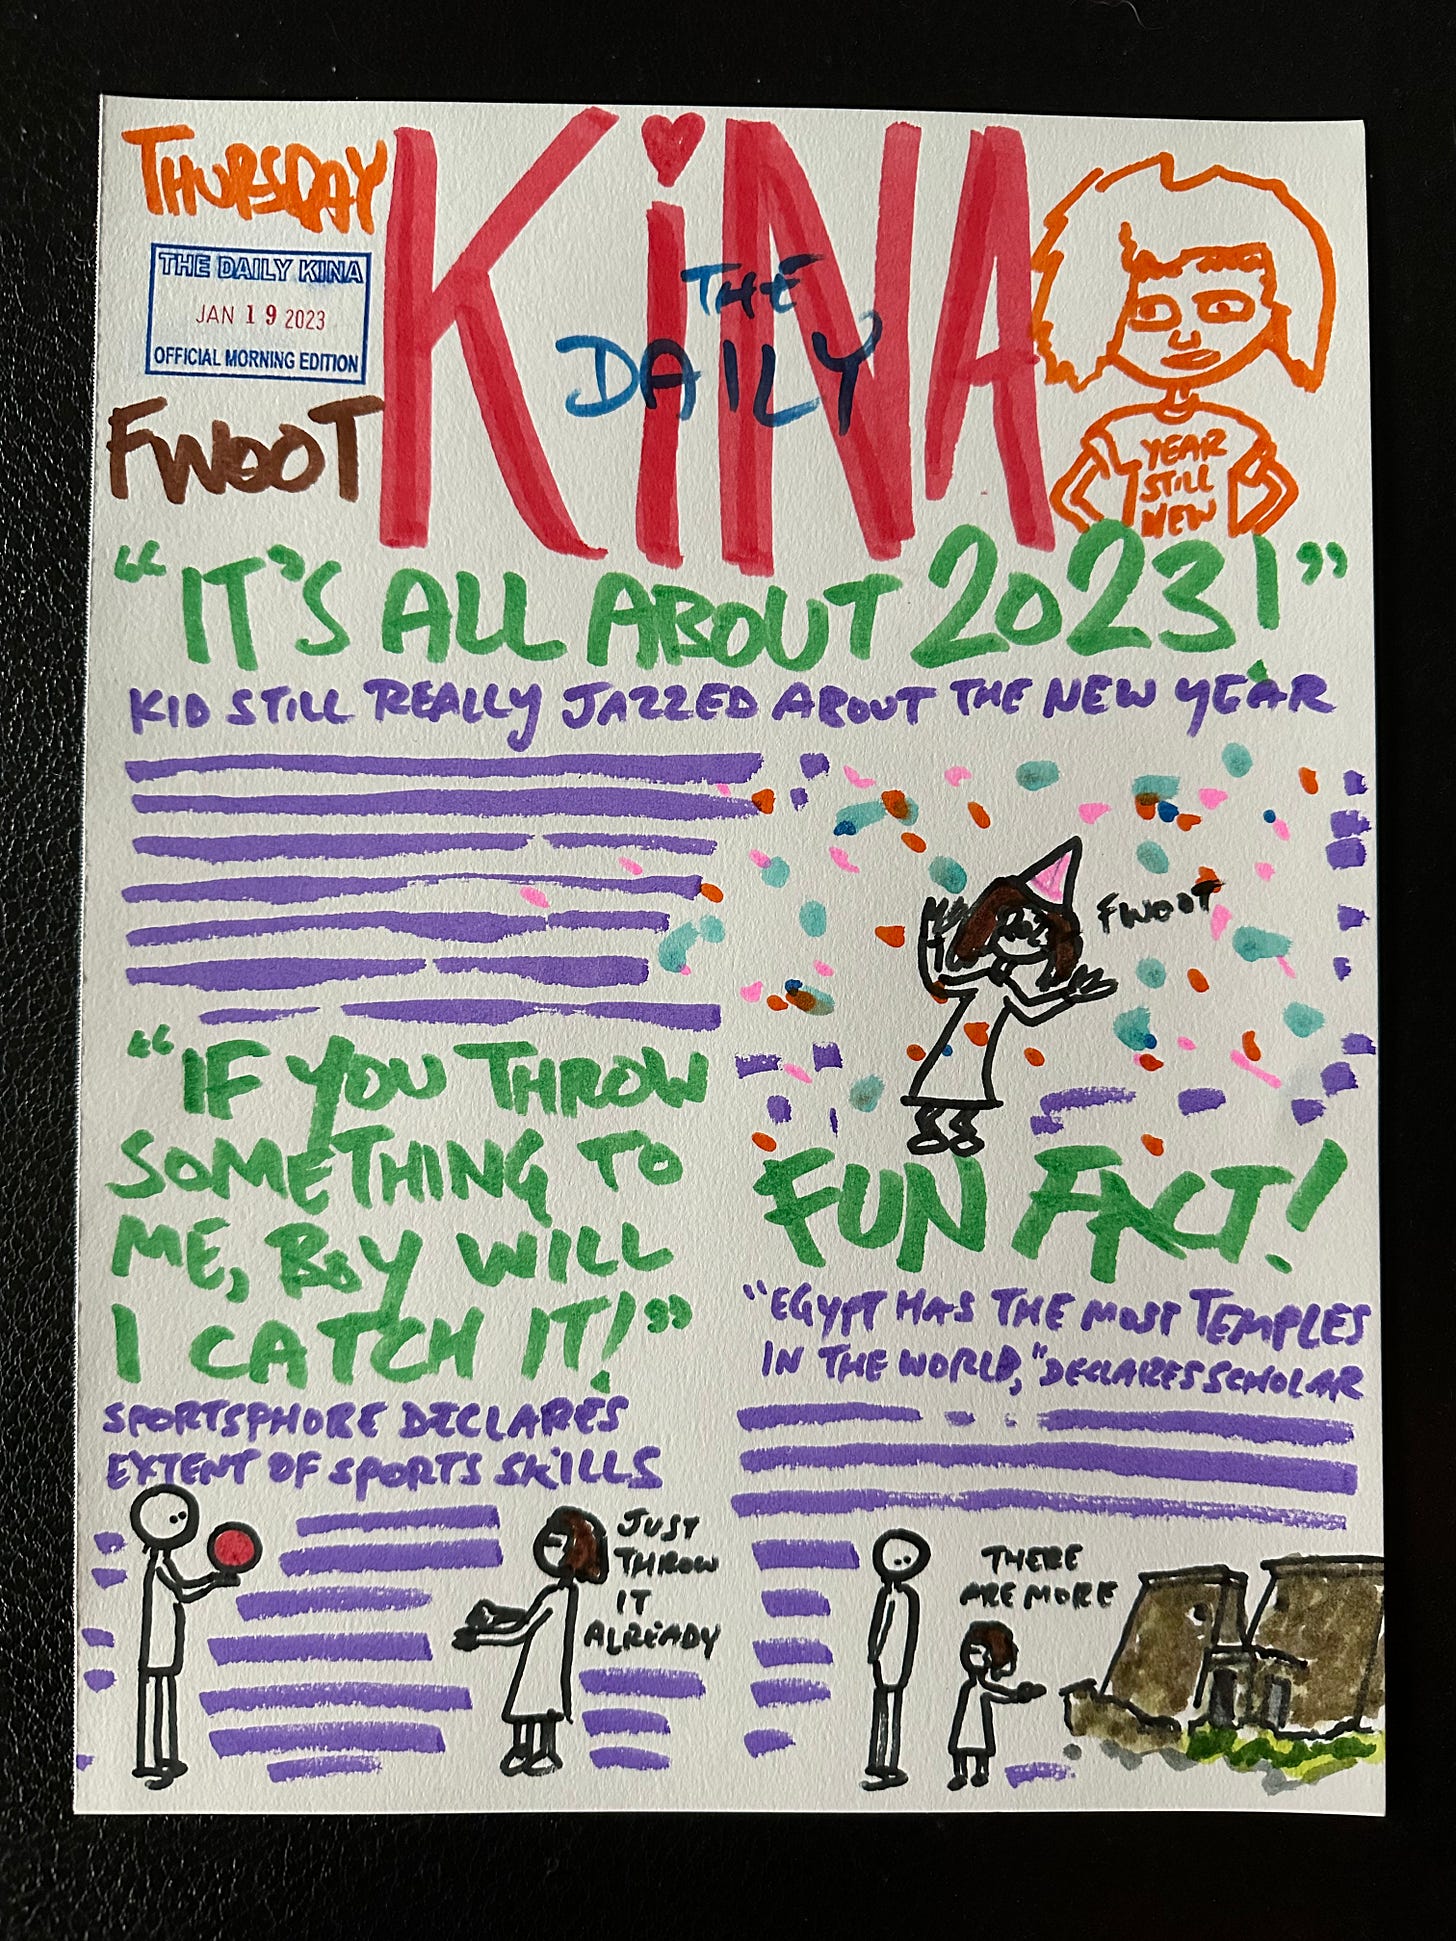 THURSDAY
THE DAILY KINA
JAN 19 2023
OFFICIAL MORNING EDITION
FWOOT
KiNA
THE
DAILY
YEAR
STILL
NEW
"IT'S ALL ABOUT 2023!"
KID STILL REALLY JAZZED ABOUT THE NEW YEAR
FWOOT
"IF YOU THROW
SOMETHING TO
ME, BOY WILL
I CATCH IT!"
SPORTSPHOBE DECLARES
EXTENT OF SPORTS SKILLS
JUST
THROW
IT
ALREADY
FUN FACT!
"EGYPT HAS THE MOST TEMPLES
IN THE WORLD," DECLARES SCHOLAR
THERE
ARE MORE